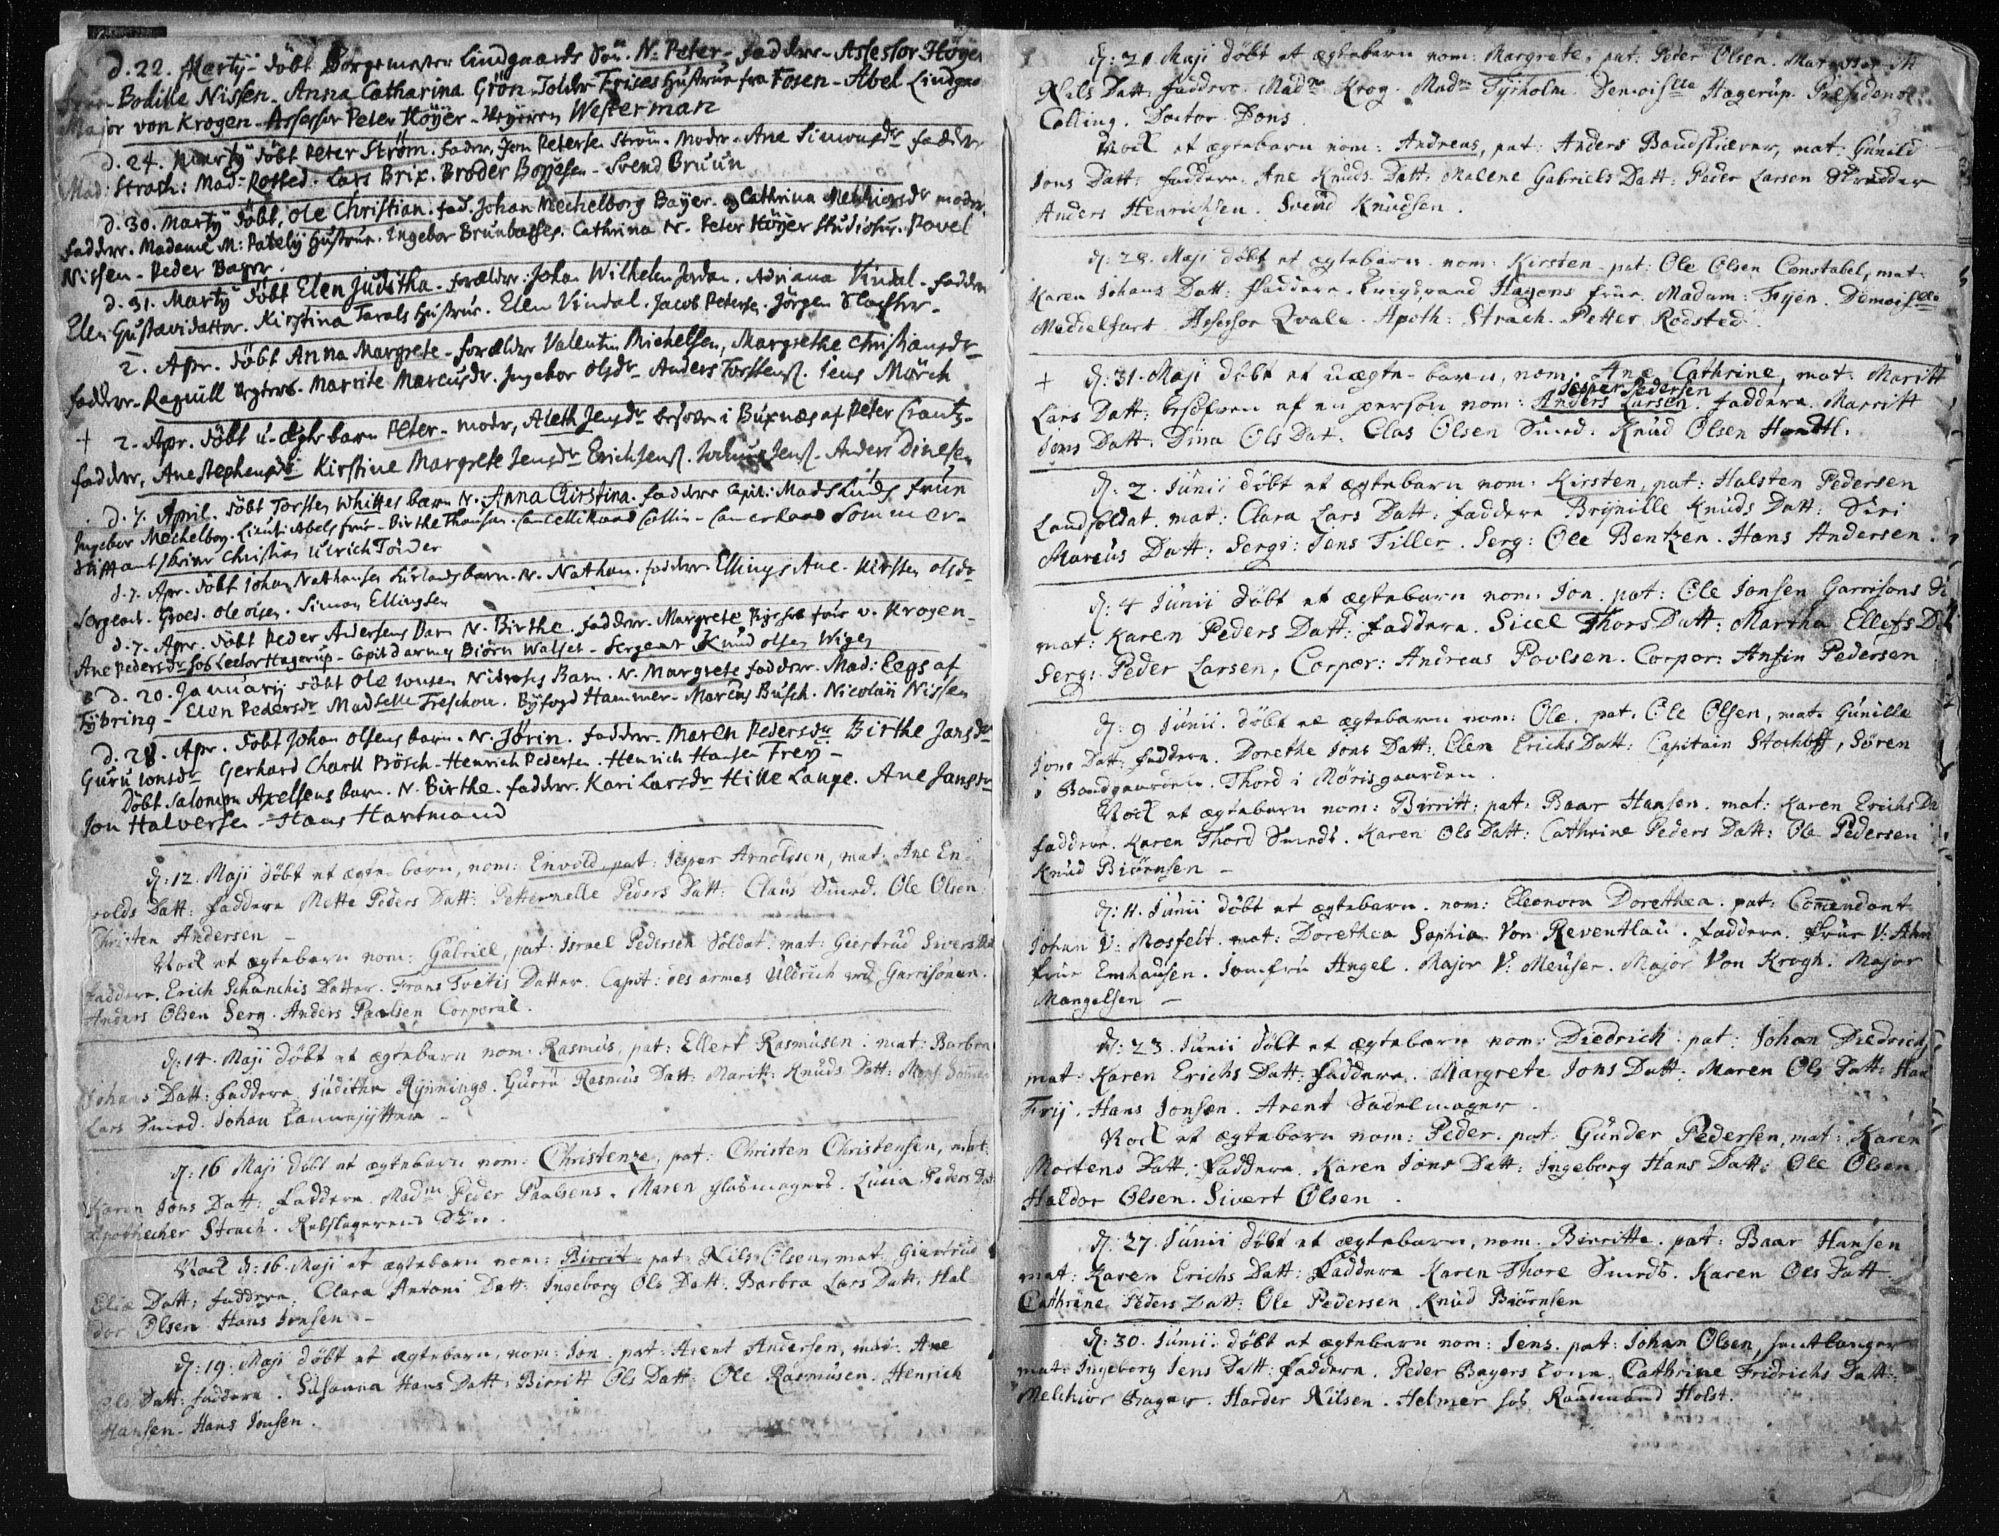 d. 22. Martÿ döbt Borgemester Lindgaards Sön. N. Peter. faddere Assessor Höÿer
Bodille Nissen. Anna Catharina Grön. Tolder Frises Hustrue fra Fosen. Abel Lindgaa
Major von Krogen. Assessor Peter Höÿer. Westerman
d. 24. Martÿ döbt Peter Ström. fader, Jon Petersen Ström. Moder. Ane Simonsdr faddere
Mad: Strach: Mad: Rotsed. Lars Brix. Broder Borresen. Svend Bruun
d. 30. Martÿ döbt Ole Christian. fad. Johan Mechelborg Baÿer. og Cathrina Melchiorsdr moder.
faddere. Madame M: Patelÿ Hustrue. Ingebor Cathrina N. Peter Höÿer Studiosus. Povel
Nissen. Peder Bager.
d. 31. Martÿ döbt Elen Juditha. forældre: Johan Wilhelm Jordan. Adriana Vindal. faddere
Elen Gustavidatter. Kirstina Tarals Hustrue. Elen Vindal. Jacob Peterse. Jörgen Slagter.
2. Apr. döbt Anna Margrete. forældre Valentin Michelsen, Margrethe Christiansdr
faddere. Ragnill Marrite Marcusdr. Ingebor Olsdr. Anders Torstens. Jens Mörch
+ 2. Apr. döbt u-ægte barn Peter. moder, Aleth Jensdr besover i Buxnæs af Peter Crantz.
fadder, Ane Stephensdr Kirstine Margrete Jensdr Erich Jens. Anders Dinesen
d. 7. April. döbt Torsten Whittes barn N. Anna Christina. faddere Capit: Mads Luds fruen
Ingebor Mechelborg. Lieut: Abels frue. Birthe Thomsen. Cancelliraad Collin. Cammerraad Sommer.
Stiftamtskriver Christian Ulrich Tönder
d. 7. Apr. döbt Johan Nathansen barn. N. Nathan. faddere. Ellings Ane. Kirsten Olsdr
Sergeant. Groed. Ole Olsen. Simon Ellingsen
d. 7. Apr. döbt Peder Andersens Barn N. Birthe. faddere. Margrete frue v. Krogen.
Ane Pedersdr hos Lector Hagerup. Capit Darmes Biörn Walset. Sergeant Knud Olsen Wigen
d. 20. Januarij döbt Ole Nisens Barn. N. Margrete faddere. Mad: Legsaf
Fÿbring. Elen Pedersdr Madselle Treschow. Bÿfogd Hammer. Marcus Busch. Nicolaii Nissen
d. 28. Apr. döbt Johan Olsens barn. N. Jörin. faddere. Maren Pedersdr Birthe Jansdr
Guru Jonsdr Gerhard Charll Bösch. Henrich Pedersen. Henrich Hansen Freÿ
Döbt Salomon Axelsens barn. N. Birthe. faddere. Kari Larsdr Hille Lange. Ane Jansdr
Jon Halversen. Hans Hartmand
d: 12. Maji döbt et ægte-barn, nom: Envold, pat: Jesper Arnolssen, mat: Ane En
volds Datt: faddere Mette Peders Datt: Petternelle Peders Datt: Claus Smed. Ole Olsen
Christen Andersen
Nock et ægtebarn nom: Gabriel, pat: Israel Pedersen Soldat, mat: Geertrud Sivers Datt
faddere. Erich Schanchis Datter. Frans Tvetis Datter. Capit: des armes Uldrich ved Garnisonen.
Anders Olsen Serg. Anders Paulsen Corporal.
d: 14. Maji döbt et ægtebarn nom: Rasmus, pat: Ellert Rasmusen. mat: Barbra
Johans Datt: faddere Juditha Rÿnnings. Gurru Rasmus Datt: Maritt: Knuds Datt:
Lars Smed. Johan
d: 16 Maji döbt et ægtebarn nom: Christenze, pat: Christen Christensen, mat:
Karen Jons Datt: faddere. Madm Peder Paulsens. Maren Glasmagers. Lucia Peders Dat
Apothecher Strach. Rebslagerens Sön.
Nock d: 16. Maji et ægtebarn nom: Birrit. pat: Nils Olsen, mat: Giertrud
Eliæ Datt: faddere. Clara Antoni Datt: Ingeborg Ols Datt. Barbra Lars Datt: Hal
dor Olsen Hans Jonsen
d: 19. Maji döbt et ægtebarn, nom: Jon. pat: Arent Andersen, mat: Ane
Ols Datt: faddere. Susanna Hans Datt: Birritt Ols Datt: Ole Rasmusen. Henrich
Hansen. Hans Jonsen.
d: 21 Maji döbt et ægtebarn nom: Margrete, pat: Peder Olsen.
Nils Datt: faddere. Madme Krog. Madm Tÿrholm. Demoiselle Hagerup. Præsident
Colling. Doctor Dons.
Nock et ægtebarn nom: Andreas, pat: Anders Baadskierer, mat: Gunild
Jons Datt: faddere. Ane Knuds Datt: Malene Gabriels Datt: Peder Larsen Skredder
Anders Henrichsen. Svend Knudsen.
d: 28. Maji döbt et ægtebarn. nom: Kirsten. pat: Ole Olsen Constabel, mat:
Karen Johans Datt: faddere. Krigsraad Hagens frue. Madam: Fyen. Demoiselle
Meddelfart. Assessor Qvale. Apoth: Strach. Petter Rodsted.
+ d: 31. Maji döbt et uægte-barn, nom: Ane Cathrine, mat: Maritt
Jesper Pedersen
Lars Datt: besofven af en person nom: Anders Larsen. faddere. Marritt
Jons Datt. Dina Ols Dat. Clas Olsen Smed. Knud Olsen Handtl.
d: 2. Junii döbt et ægtebarn nom: Kirsten, pat: Halsten Pedersen
Landsoldat. mat: Clara Lars Datt: faddere Brynille Knuds Datt: Siri
Marcus Datt: Serg: Jens Tiller. Serg: Ole Bentzen. Hans Andersen.
d: 4 Junii döbt et ægtebarn nom: Jon. pat: Ole Jonsen Garnisons
mat: Karen Peders Datt: faddere. Sicel Thors Datt: Martha Ellefs D
Serg: Peder Larsen, Corpor: Andreas Povlsen. Corpor: Ansin Pedersen
d: 9 Junii. döbt et ægtebarn nom: Ole. pat: Ole Olsen, mat. Gunille
Jons Datt: faddere. Dorethe Jons Datt: Elen Erichs Datt: Capitain Stochhoff, Sören
i Baadgaarden. Thord i Mörisgaarden.
Nock et ægtebarn nom: Birritt: pat: Baar Hansen. mat: Karen Erichs Da
faddere. Karen Thord Smeds. Karen Ols Datt: Cathrine Peders Datt: Ole Pedersen
Knud Biörnsen
d: 11. Junii döbt et ægtebarn. nom: Eleonora Dorethea. pat: Comendant
Johan V: Mosfelt. mat: Dorethea Sophia Von Reventlau. faddere. frue V: Ahn
frue Emhausen. Jomfru Angel. Major V: Meuser. Major Von Krogh. Major
Mangelsen
d: 23. Junii döbt et ægtebarn nom: Diedrich. pat: Johan Diedrich
mat: Karen Erichs Datt: faddere. Margrete Jons Datt. Maren Ols Datt: Han
Frij. Hans Jonsen. Arent Sadelmager.
Nock et ægtebarn nom: Peder. pat: Gunder Pedersen, mat: Karen
Mortens Datt: faddere. Karen Jons Datt: Ingeborg Hans Datt: Ole Olsen
Haldor Olsen. Sivert Olsen.
d: 27. Junii döbt et ægtebarn, nom. Birritta. pat: Baar Hansen
mat: Karen Erichs Datt: faddere Karen Thore Smeds. Karen Ols Datt
Cathrine Peders Datt: Ole Pedersen Knud Biörnsen
d: 30. Junii: döbt et ægtebarn nom: Jens. pat: Johan Olsen,
mat: Ingeborg Jens Datt: faddere. Peder Bagers Cone. Cathrine Fridrichs Datt:
Melchior Bager. Harder Nilsen. Helmer hos Raadmand Holst.